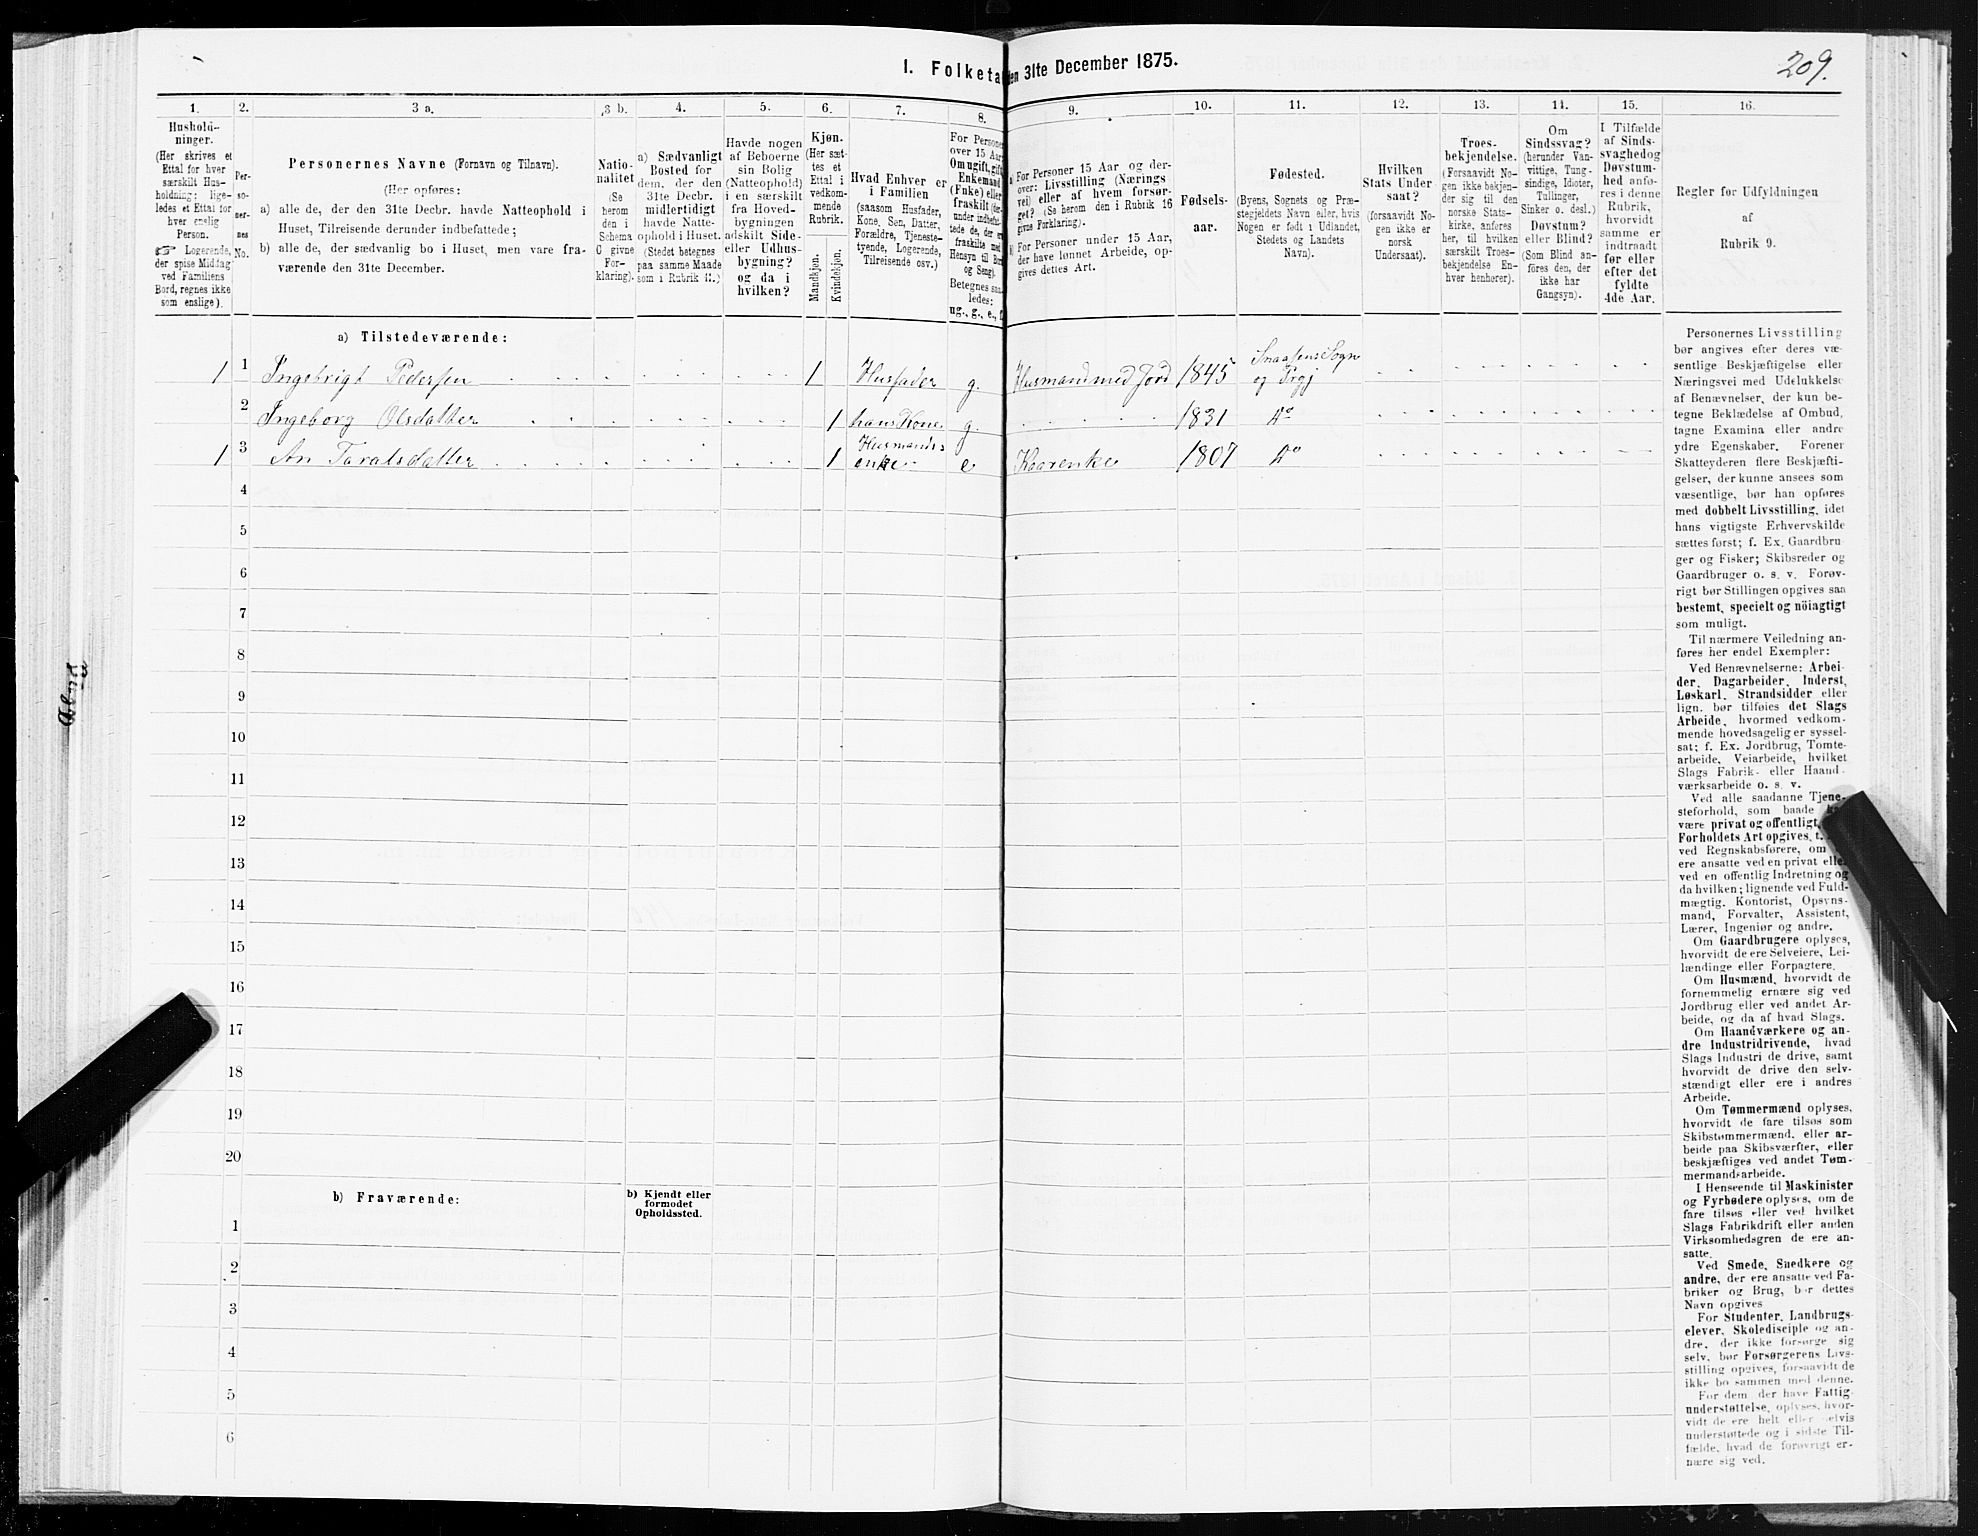 1. Folketa
den 31te December 1875.
209.
1.
2.
3 a.
3 b.
4.
5.
6.
7.
8.
9.
10.
11.
12.
13.
14.
15.
16.
Hushold-
ninger.
(Her skrives et
Ettal for hver
særskilt Hus-
holdning; lige-
ledes et Ettal for
hver enslig
Person.
☞ Logerende,
der spise Middag
ved Familiens
Bord, regnes ikke
som enslige).
Per-
so-
ner-
nes
No.
Personernes Navne (Fornavn og Tilnavn).
(Her opføres:
a) alle de, der den 31te Decbr. havde Natteophold i
Huset, Tilreisende derunder indbefattede;
b) alle de, der sædvanlig bo i Huset, men vare fra-
værende den 31te December.
Natio-
nalitet
(Se
herom
den i
Schema
C givne
For-
klaring).
a) Sædvanligt
Bosted for
dem, der den
31te Decbr.
midlertidigt
havde Natte-
ophold i Huset.
(Stedet betegnes
paa samme Maade
som i Rubrik 11.)
Havde nogen
af Beboerne
sin Bolig
(Natteophold)
i en særskilt
fra Hoved-
bygningen
adskilt Side-
eller Udhus-
bygning?
og da i
hvilken?
Kjøn.
(Her sæt-
tes et
Ettal i
vedkom-
mende
Rubrik.
Mandkjøn.
Kvindekjøn.
Hvad Enhver er
i Familien
(saasom Husfader,
Kone, Søn, Datter,
Forældre, Tjeneste-
tyende, Logerende,
Tilreisende osv.)
For Persone
over 15 Aar
Om ugift, gift
Enkemand
(Enke) eller
fraskilt
Betegnes saa
ledes:
ug., g., e., f.
a) For Personer 15 Aar og der-
over: Livsstilling (Nærings-
vei) eller af hvem forsør-
get? (Se herom den i Rubrik 16
givne Forklaring).
b) For Personer under 15 Aar,
der have lønnet Arbeide, op-
gives dettes Art.
Fødsels-
aar.
Fødested.
(Byens, Sognets og Præ-
stegjeldets Navn eller, hvis
Nogen er født i Udlandet,
Stedets og Landets
Navn).
Hvilken
Stats Under
saat?
(forsaavidt No-
gen ikke er
norsk
Undersaat).
Troes-
bekjendelse.
(Forsaavidt No-
gen ikke bekjen-
der sig til den
norske Stats-
kirke, anføres
her, til hvilken
særskilt Troes-
bekjendelse En-
hver henhører).
Om
Sindssvag?
(herunder Van-
vittige, Tung-
sindige, Idioter,
Tullinger,
Sinker o. desl.)
Døvstum?
eller Blind?
(Som Blind an-
føres den, der
ikke har
Gangsyn).
I Tilfælde
af Sinds-
svaghed og
Døvstum-
hed anfø-
res i denne
Rubrik,
hvorvidt
samme er
indtraadt
før eller
efter det
fyldte
4de Aar.
Regler for Udfyldningen
af
Rubrik 9.
a) Tilstedeværende:
1 1 Ingebrigt Pedersen 1 Husfader g. Husmand med Jord 1845 Snaasens Sogn og Prgj
2 Ingeborg Olsdatter 1 hans Kone g. 1831 Do
1 3 An Taralsdatter 1 Husmands enke e Kaarenke 1807 Do
4
5
6
7
8
9
10
11
12
13
14
15
16
17
18
19
20
b) Fraværende:
b) Kjendt eller
formodet
Opholdssted.
1
2
3
4
5
6
Personernes Livsstilling
bør angives efter deres væ-
sentlige Beskjæftigelse eller
Næringsvei med Udelukkelse
af Benævnelser, der kun be-
tegne Beklædelse af Ombud,
tagne Examina eller andre
ydre Egenskaber. Forener
Skatteyderen flere Beskjæfti-
gelser, der kunne ansees som
væsentlige, bør han opføres
med dobbelt Livsstilling, idet
hans vigtigste Erhvervskilde
sættes først; f. Ex. Gaardbru-
ger og Fisker; Skibsreder og
Gaardbruger o. s. v. Forøv-
rigt bør Stillingen opgives saa
bestemt, specielt og nöiagtigt
som muligt.
Til nærmere Veiledning an-
føres her endel Exempler:
Ved Benævnelserne: Arbei-
der, Dagarbeider, Inderst,
Løskarl, Strandsidder eller
lign. bør tilføies det Slags
Arbeide, hvormed vedkom-
mende hovedsagelig er syssel-
sat; f. Ex. Jordbrug, Tomte-
arbeide, Veiarbeide, hvilket
Slags Fabrik- eller Haand-
værksarbeide o. s. v.
Ved alle saadanne Tjene-
steforhold, som baade
være privat og offentligt,
Forholdets Art opgives, t.
ved Regnskabsførere, om
ere ansatte ved en privat eller
ved en offentlig Indretning og
da hvilken; lignende ved Fuld-
mægtig, Kontorist, Opsyns-
mand, Forvalter, Assistent,
Lærer, Ingeniør og andre.
Om Gaardbrugere oplyses,
hvorvidt de ere Selveiere, Lei-
lændinge eller Forpagtere.
Om Husmænd, hvorvidt de
fornemmelig ernære sig ved
Jordbrug eller ved andet Ar-
beide, og da af hvad Slags.
Om Haandværkere og an-
dre Industridrivende, hvad
Slags Industri de drive, samt
hvorvidt de drive den selv-
stændigt eller ere i andres
Arbeide.
Om Tømmermænd oplyses,
hvorvidt de fare tilsøs som
Skibstømmermænd, eller ar-
beide paa Skibsværfter, eller
beskjæftiges ved andet Tøm-
mermandsarbeide.
I Henseende til Maskinister
og Fyrbødere oplyses, om de
fare tilsøs eller ved hvilket
Slags Fabrikdrift eller anden
Virksomhedsgren de ere an-
satte.
Ved Smede, Snedkere og
andre, der ere ansatte ved Fa-
briker og Brug, bør dettes
Navn opgives
For Studenter, Landbrugs-
elever, Skoledisciple og an-
dre, der ikke forsørge sig
selv, bør Forsørgerens Livs-
stilling opgives, forsaavidt de
ikke bo sammen med denne.
For dem, der have Fattig-
understøttelse, oplyses, hvor-
vidt de ere helt eller delvis
understøttede og i sidste Til-
fælde, hvad de forøvrigt er-
nære sig ved.